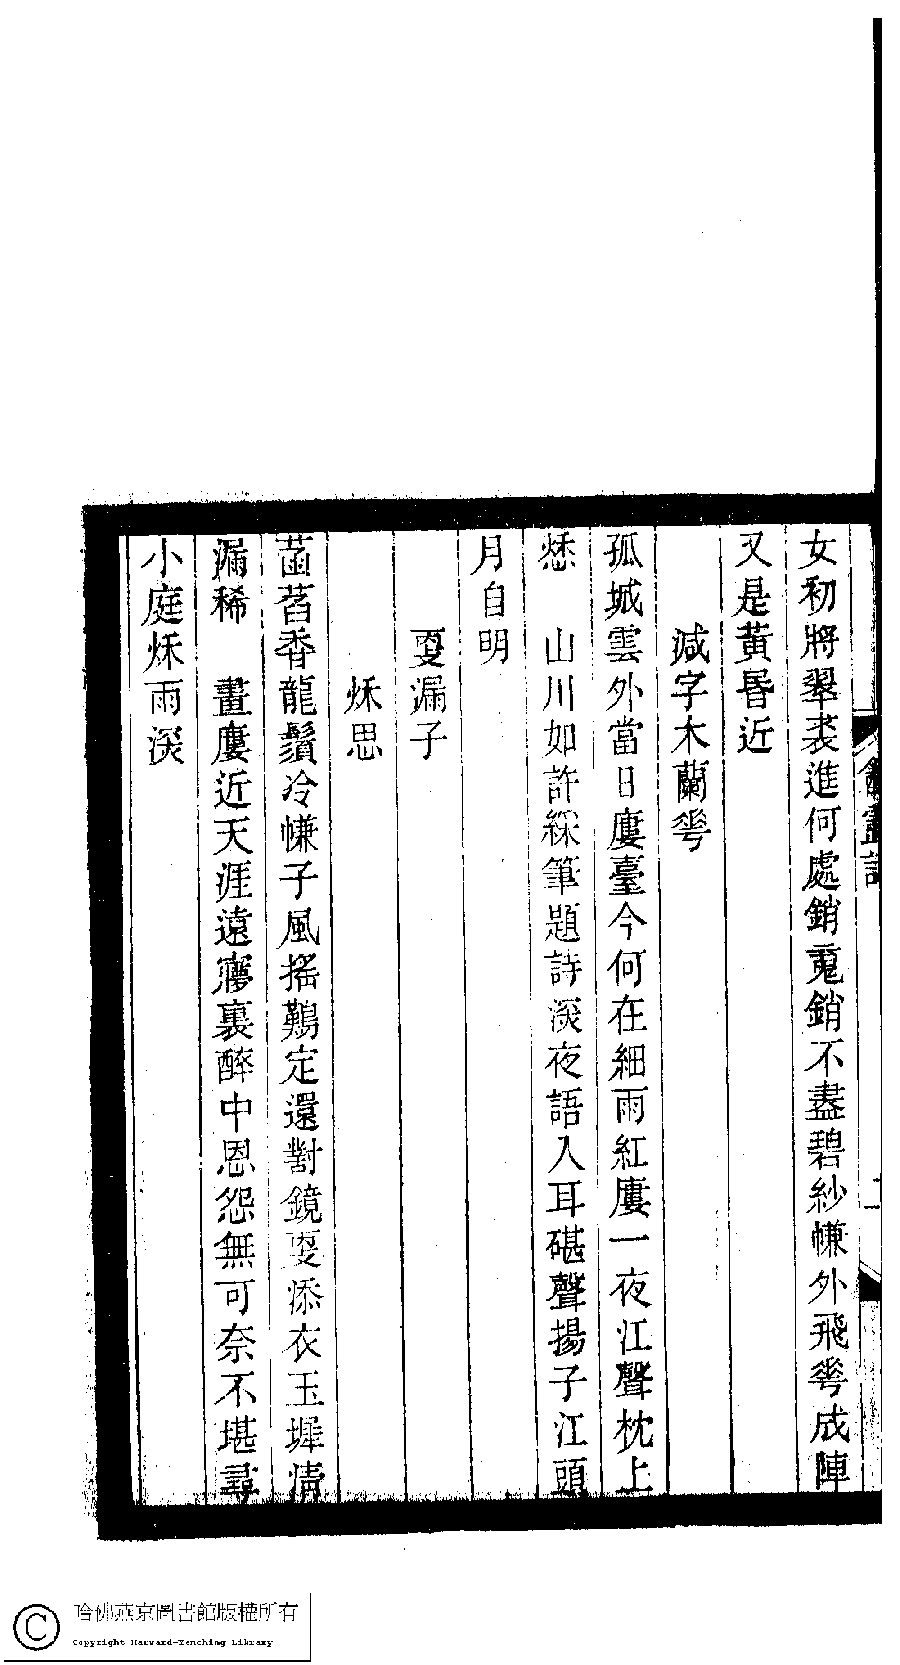 女初將翠裘進何處銷䰟銷不盡碧紗㡘外飛𠌶成陣
又是黃昬近
減字木蘭𠌶
孤城雲外當日廔臺今何在細雨紅廔一夜江聲枕上
愁　山川如許綵筆題詩深夜語入耳碪聲揚子江頭
月自明
㪅漏子
秌思
菡萏香龍鬚冷㡘子風搖鷬定還對鏡㪅添衣玉墀清
漏稀　畫廔近天涯遠寢裏醉中恩怨無可奈不堪尋
小庭秌雨深
二
哈佛燕京圖書館版權所有
Copyright Harvard-Yenching Library